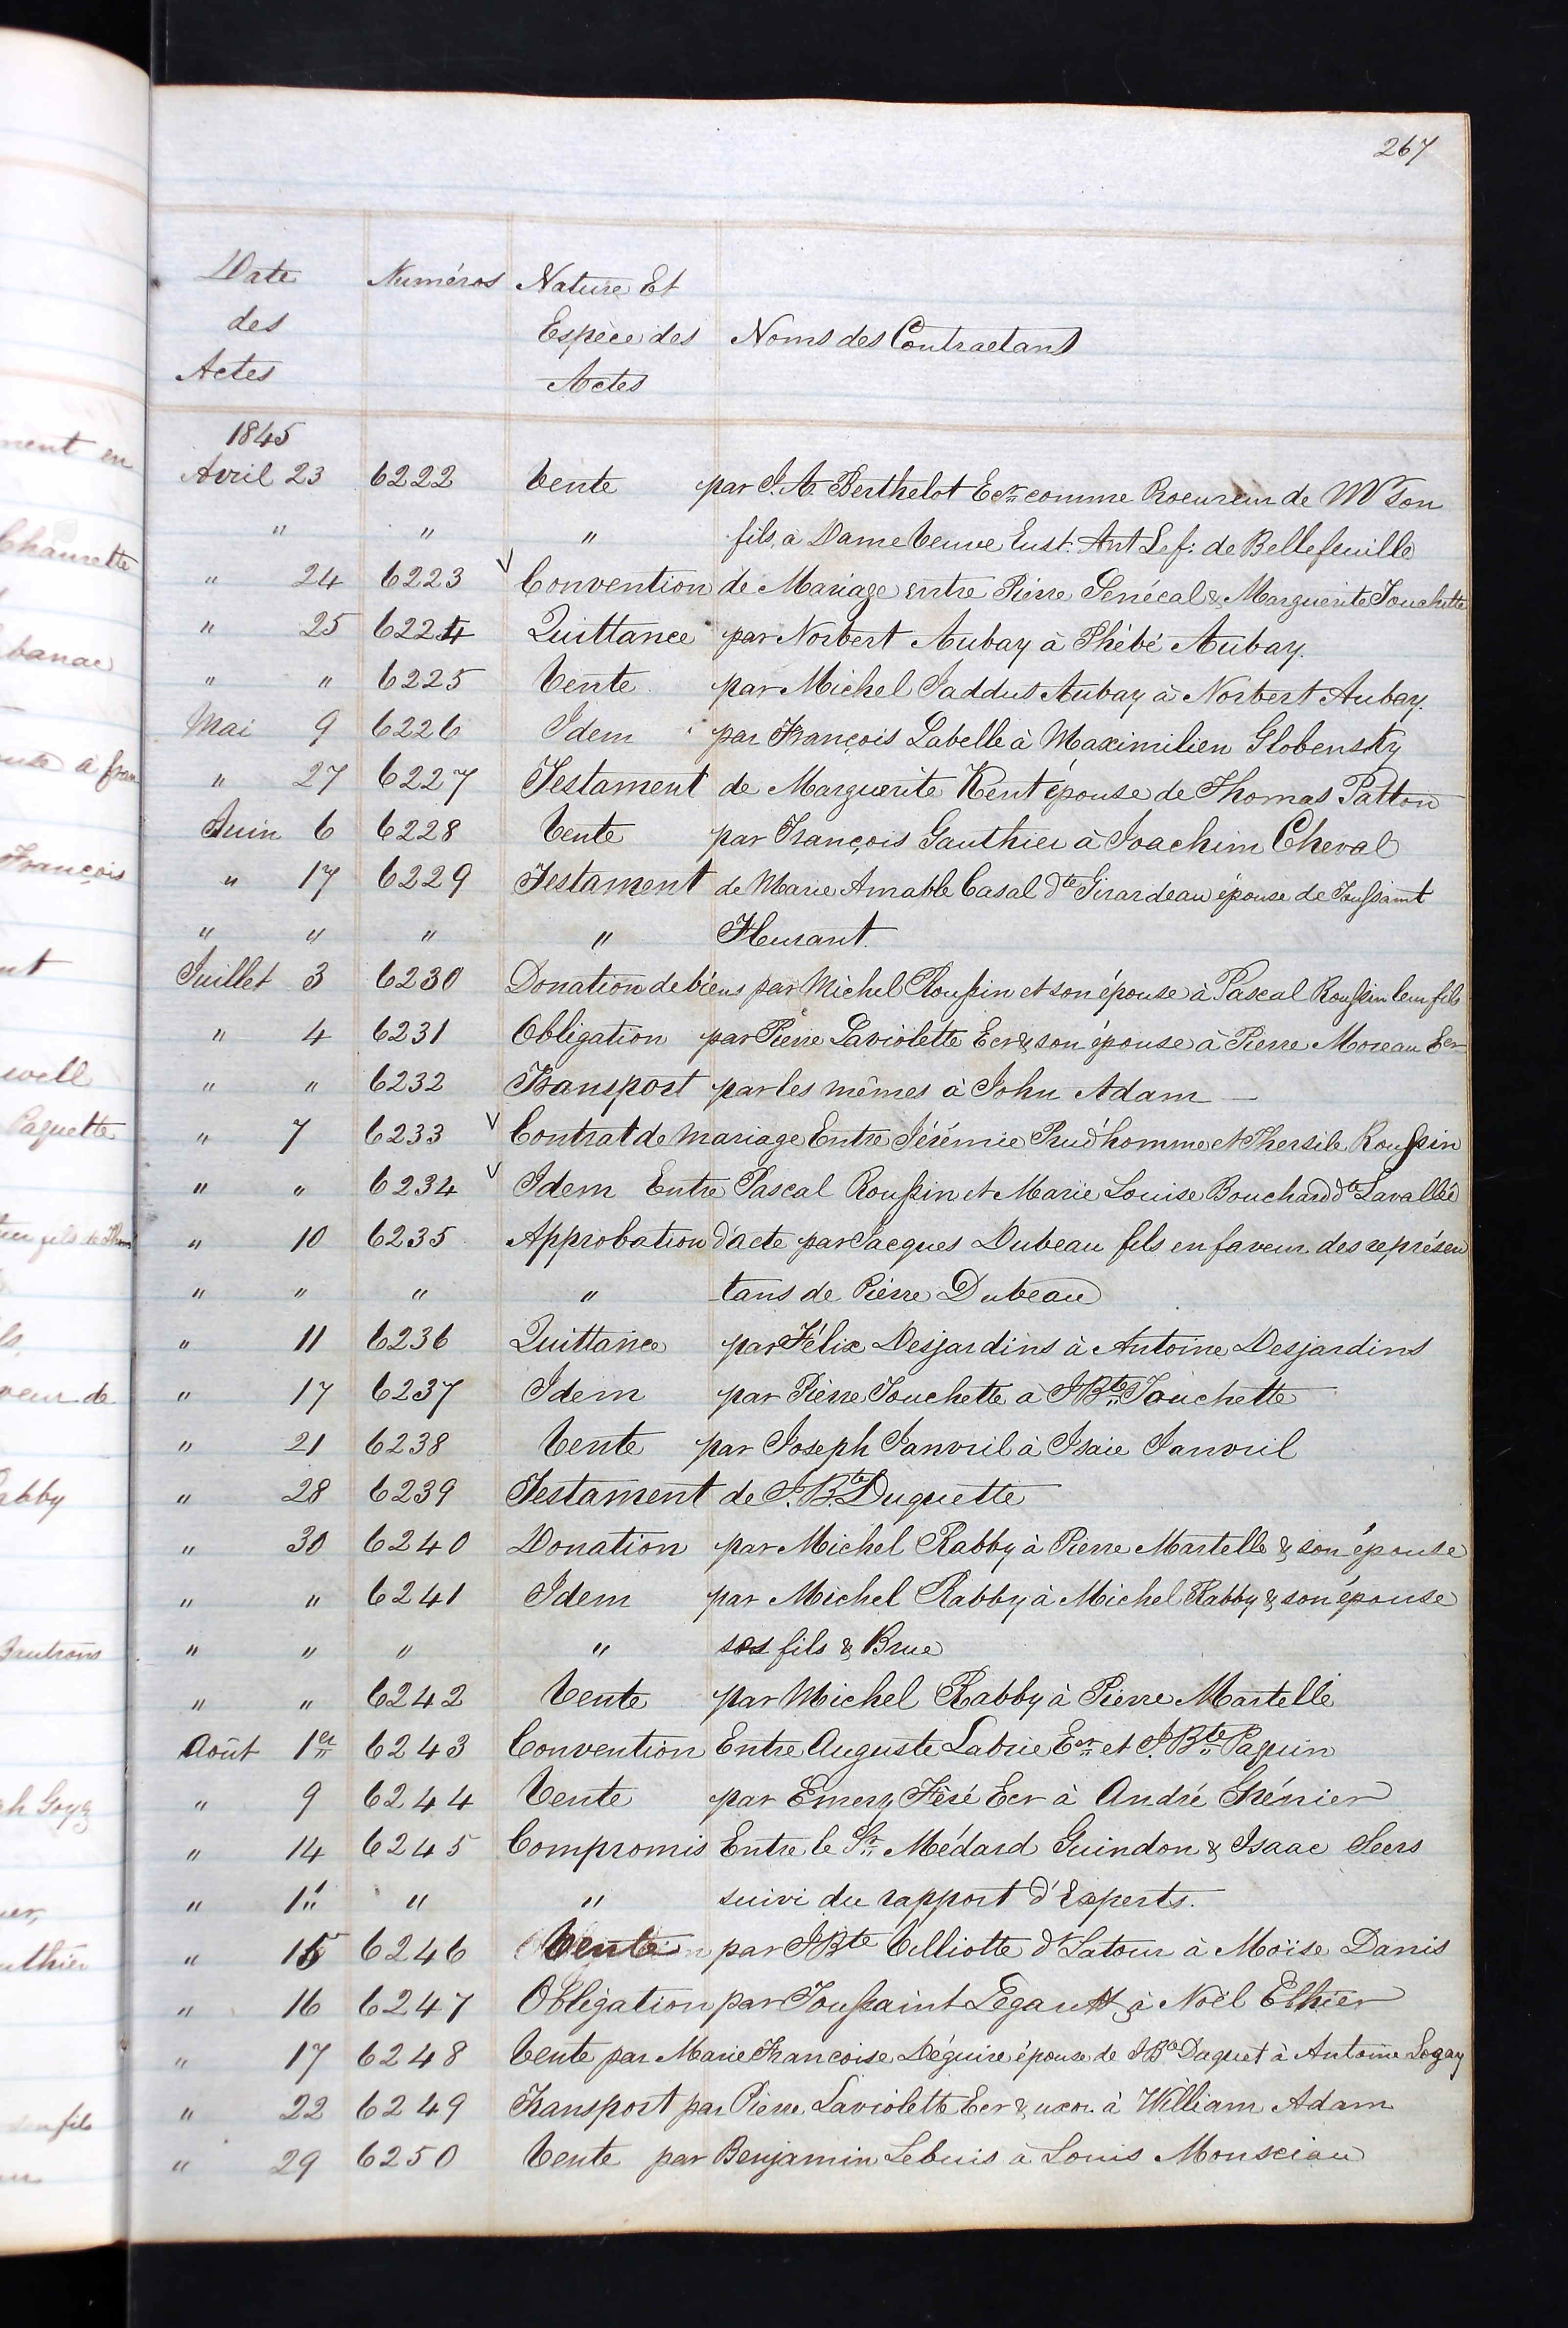 267
Date Numéros Nature Et
des Espèce des Noms des Contractans
Actes Actes
1845
Avril 23 6222 Vente par J. A. Berthelot Ecr comme Procureur de Mr son
" " " fils, à Dame Veuve Eust. Ant Lef: de Bellefeuille
" 24 6223 V Convention de Mariage entre Pierre Senécal & Marguerite Touchette
" 25 6224 Quittance par Norbert Aubay à Phébé Aubay.
" " 6225 Vente par Michel Taddus Aubay à Norbert Aubay.
Mai 9 6226 Idem par François Labelle à Maximilien Globensky
" 27 6227 Testament de Marguerite Kent épouse de Thomas Patton
Juin 6 6228 Vente par François Gauthier à Joachim Cheval
" 17 6229 Testament de Marie Amable Casal dte Girardeau épouse de Toussaint
" " " " Fleurant.
Juillet 3 6230 Donation de biens par Michel Roussin et son épouse à Pascal Roussin leur fils
" 4 6231 Obligation par Pierre Laviolette Ecr & son épouse à Pierre Moreau Ecr
" " 6232 Transport par les mêmes à John Adam
" 7 6233 V Contrat de mariage Entre Jérémie Prud'homme et Thersile Roussin
" " 6234 V Idem Entre Pascal Roussin et Marie Louise Bouchard dte Lavallée
" 10 6235 Approbation d'acte par Jacques Dubeau fils en faveur des représen
" " " " tans de Pierre Dubeau
" 11 6236 Quittance par Félix Desjardins à Antoine Desjardins
" 17 6237 Idem par Pierre Touchette à J Bte Touchette
" 21 6238 Vente par Joseph Janvril à Isaie Janvril
" 28 6239 Testament de J. Bte Duquette
" 30 6240 Donation par Michel Rabby à Pierre Martelle & son épouse
" " 6241 Idem par Michel Rabby à Michel Rabby & son épouse
" " " " ses fils & Brue
" " 6242 Vente par Michel Rabby à Pierre Martelle
Août 1er 6243 Convention Entre Auguste Labrie Ecr et J. Bte Paquin
" 9 6244 Vente par Emery Féré Ecr à André Grénier
" 14 6245 Compromis Entre le Sr Médard Guindon & Isaac Seers
" " " " suivi du rapport d'Experts.
" 15 6246 Vente par J Bte Villiotte dt Latour à Moïse Danis
" 16 6247 Obligation par Toussaint Legault à Noël Ethier
" 17 6248 Vente par Marie Francoise Déguire épouse de J Bte Daquet à Antoine Legay
" 22 6249 Transport par Pierre Laviolette Ecr & uxor à William Adam
" 29 6250 Vente par Benjamin Lebuis à Louis Monsciau